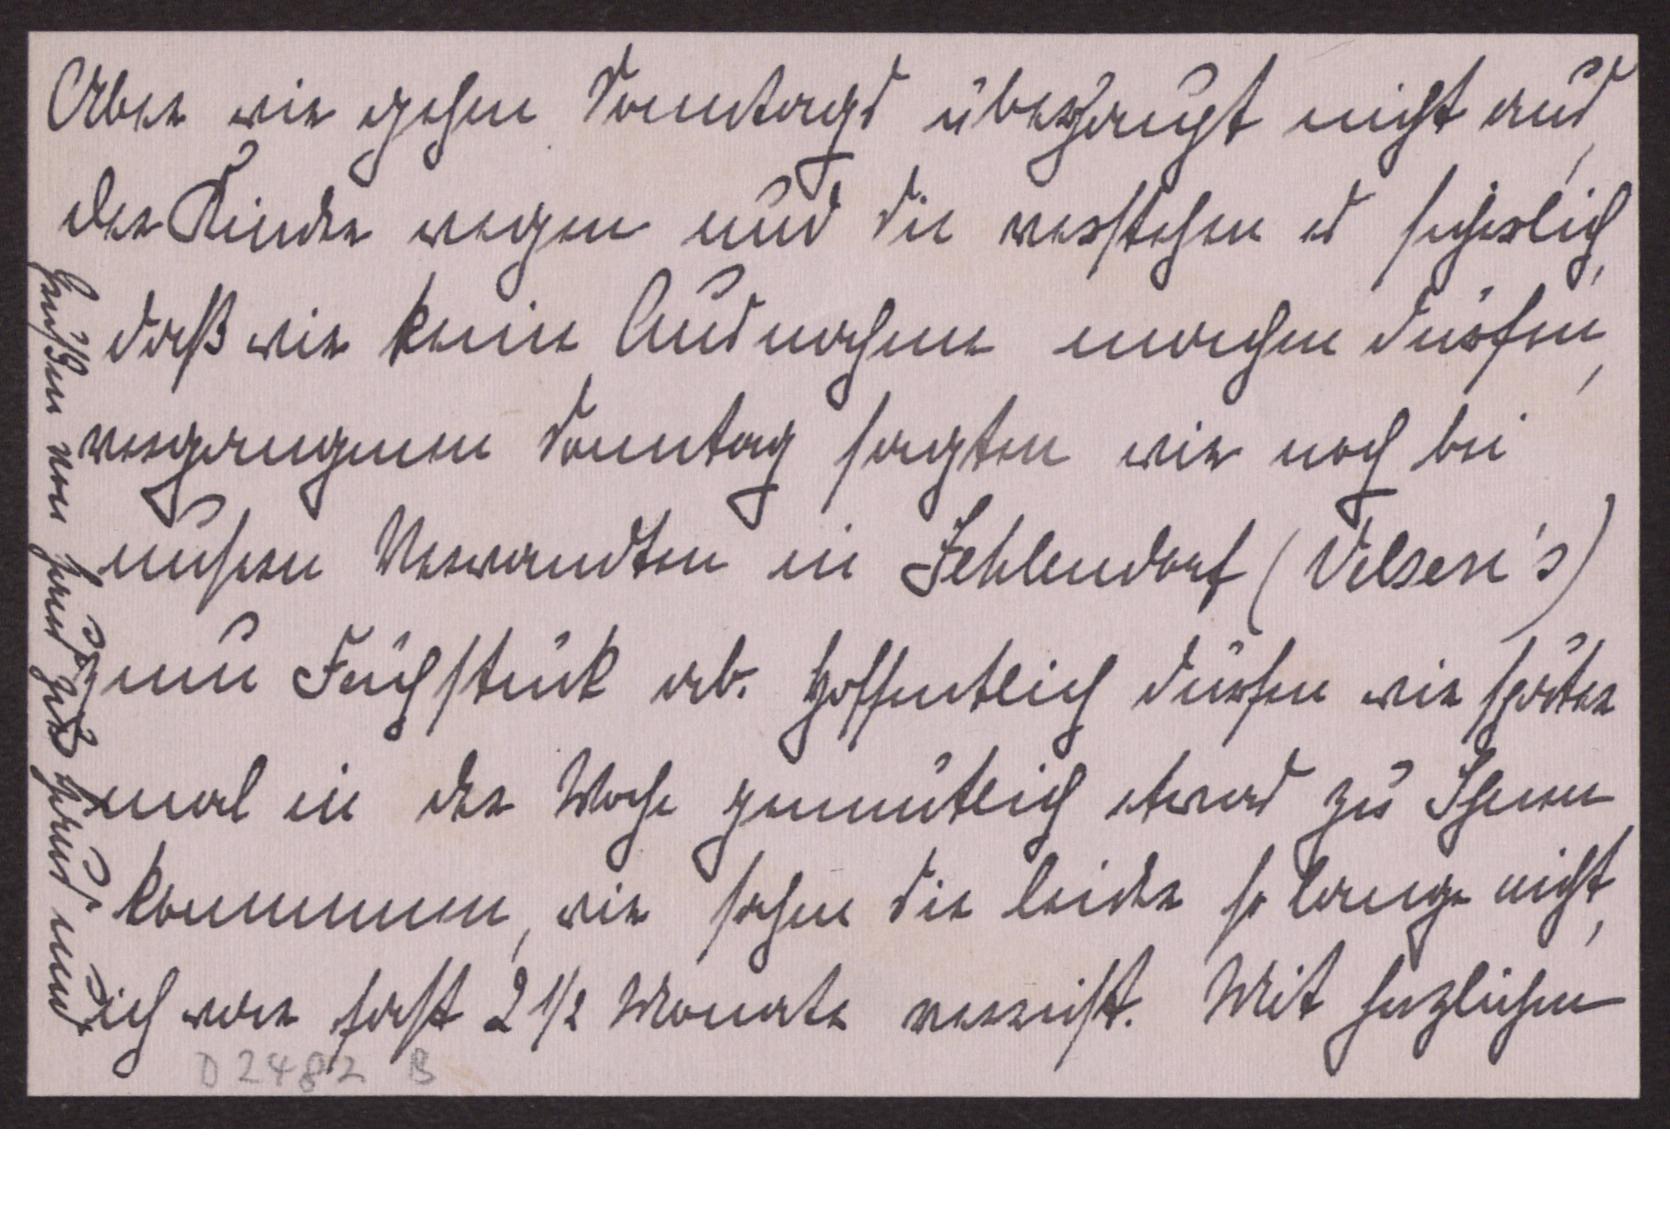 Aber wir gehen Sonntags überhaupt nicht aus,
der Kinder wegen und Sie verstehen es sicherlich,
daß wir keine Ausnahme machen dürfen,
vergangenen Sonntag sagten wir noch bei
unsern Verwandten in Zehlendorf (Velsen's)
zum Frühstück ab. Hoffentlich dürfen wir später
mal in der Woche gemütlich etwas zu Ihnen
kommen, wir sahen Sie leider so lange nicht,
ich war fast 2 1/2 Monate verreist. Mit herzlichen
Grüßen von Haus zu Haus
D 2482 B